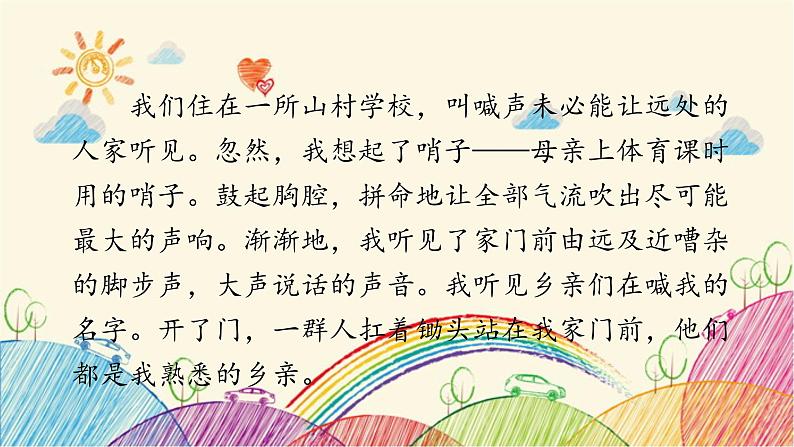 我们住在一所山村学校，叫喊声未必能让远处的
人家听见。忽然，我想起了哨子——母亲上体育课时
用的哨子。鼓起胸腔，拼命地让全部气流吹出尽可能
最大的声响。渐渐地，我听见了家门前由远及近嘈杂
的脚步声，大声说话的声音。我听见乡亲们在喊我的
名字。开了门，一群人扛着锄头站在我家门前，他们
都是我熟悉的乡亲。